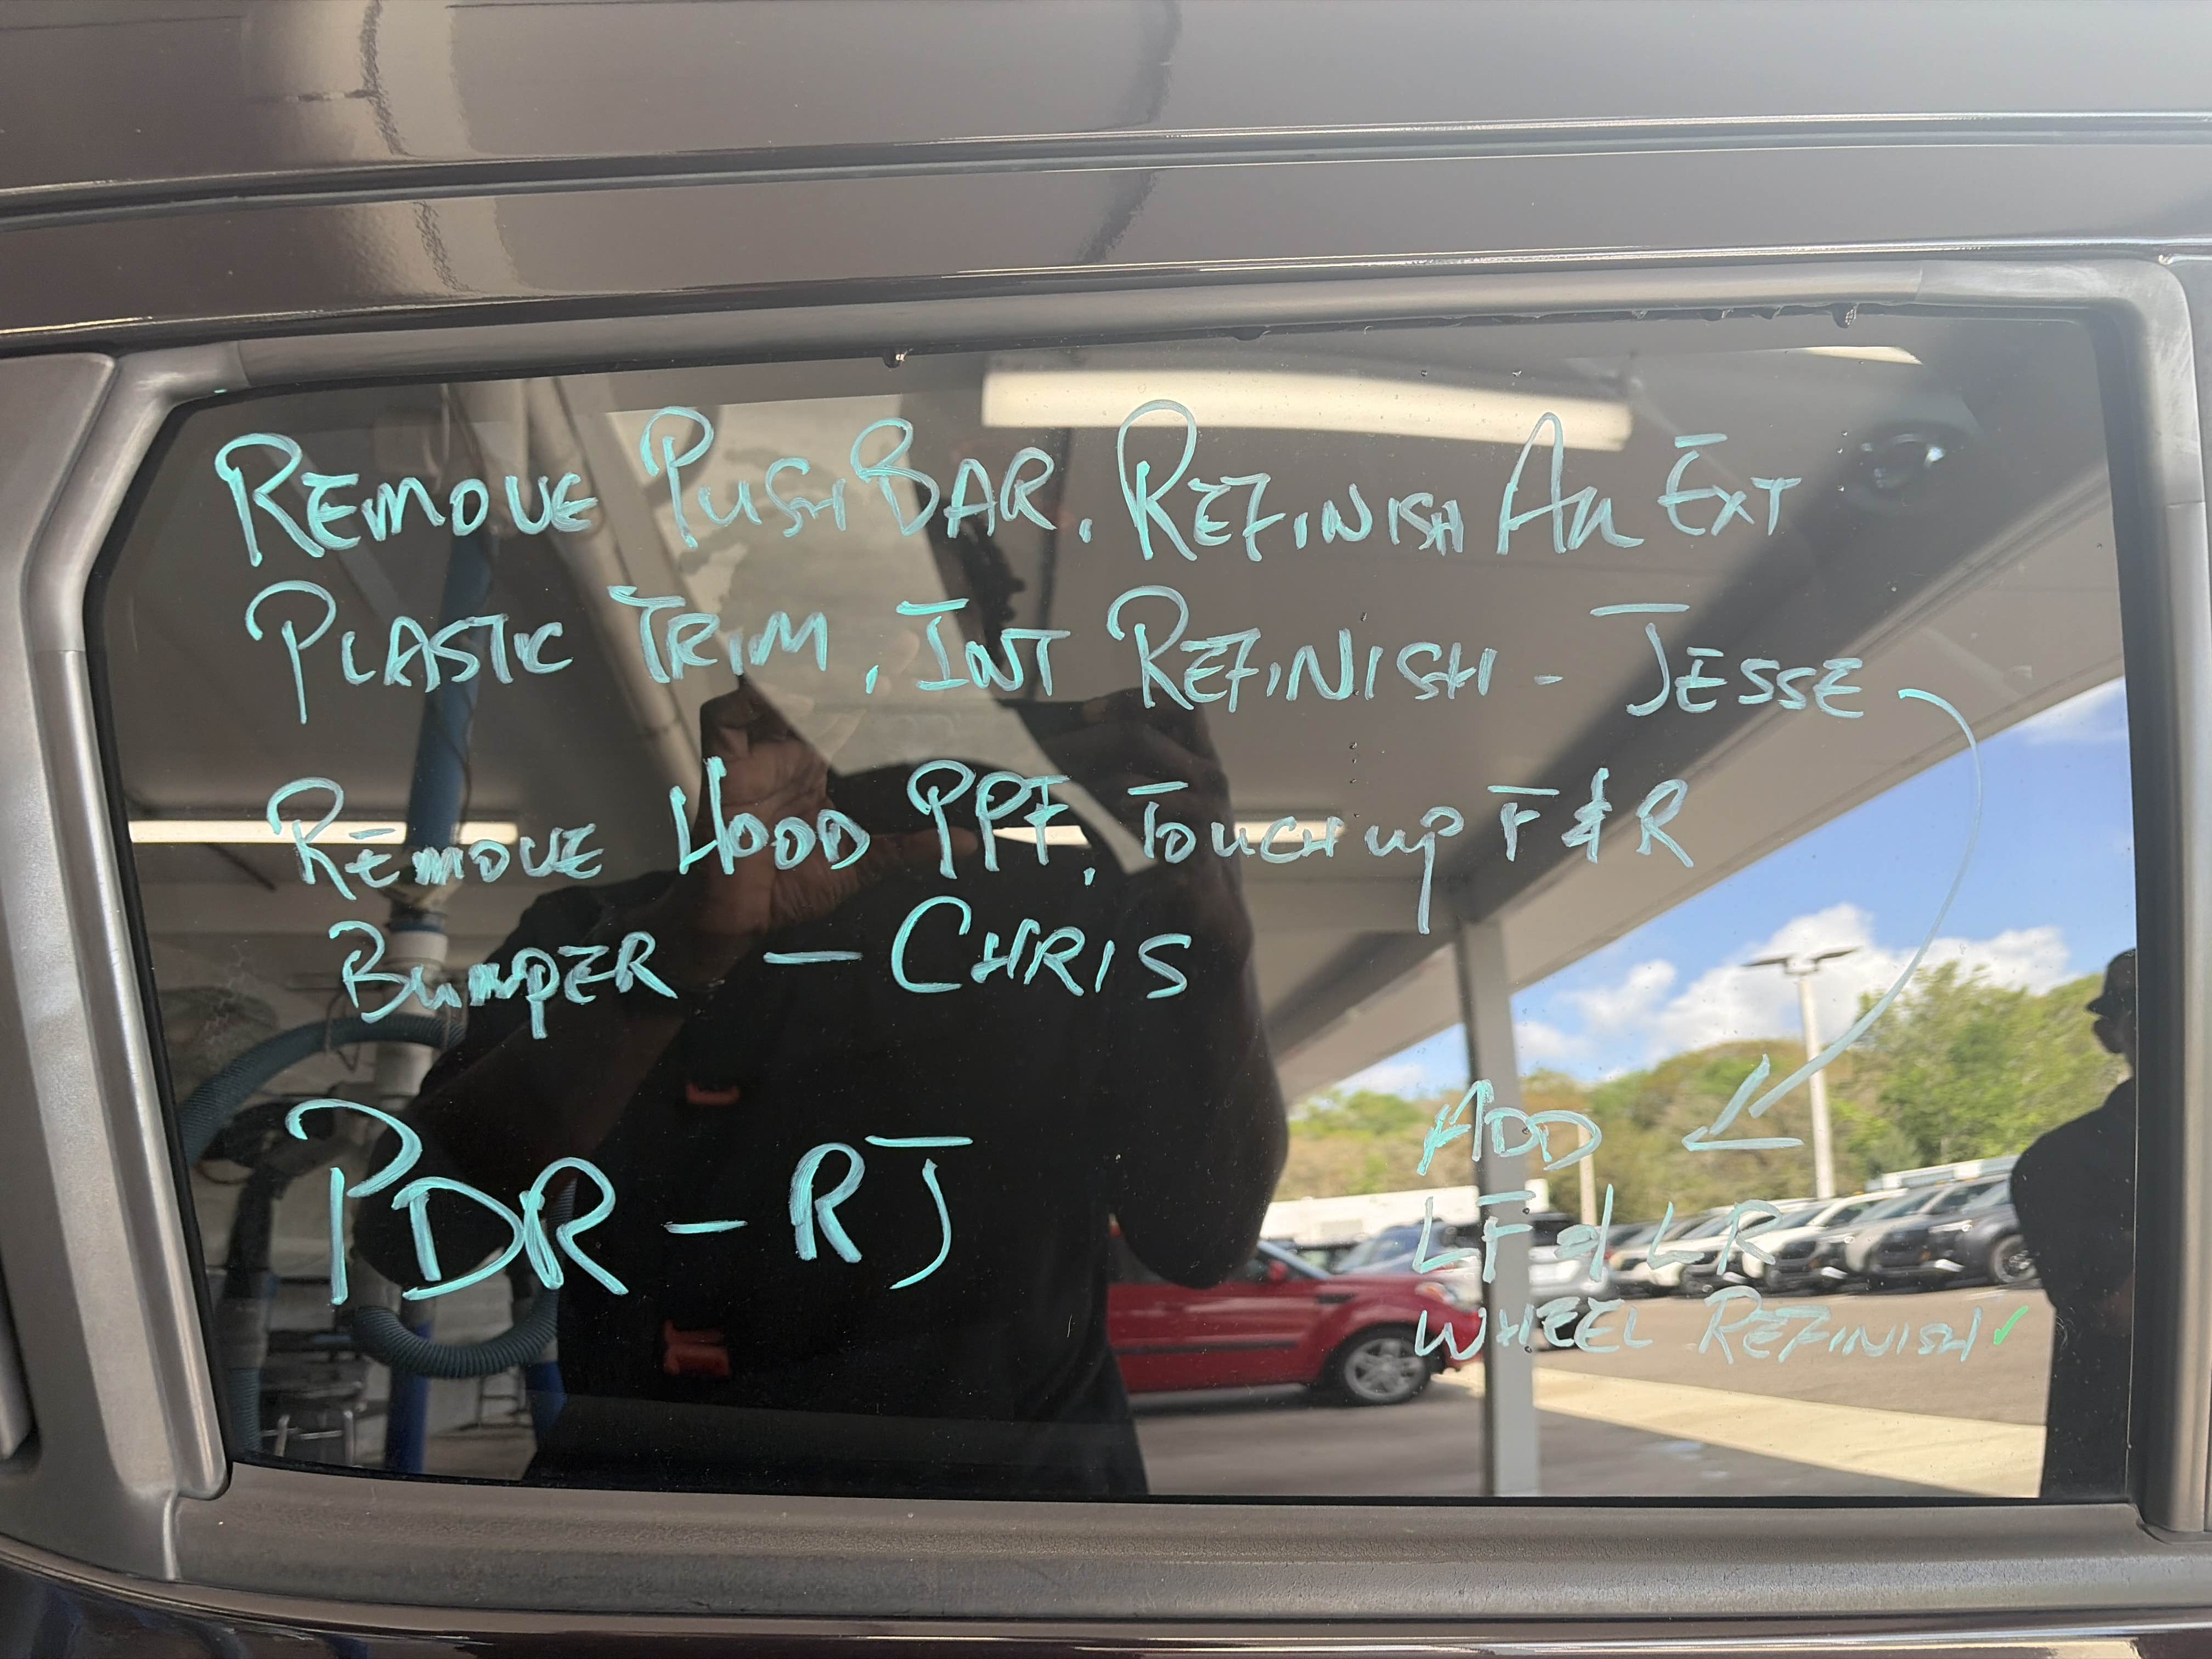 REMOVE PUSH BAR, REFINISH All EXT
PLASTIC TRIM, INT REFINISH - JESSE
REMOVE HOOD PPF, TOUCH up F & R
BUMPER — CHRIS
PDR - RJ
ADD
LF & LR
WHEEL REFINISH ✓